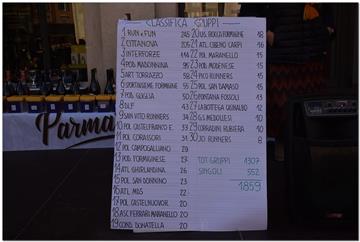 CLASSIFICA GRUPPI
1 RUN e FUN 245
2 CITTANOVA 205
3 INTERFORZE 114
4 POD. MADONNINA 95
5 ART. TORRAZZO
6 SPORTINSIEME FORMIGINE
7 POD. GUGLIA 50
8 DLF 43
9 SAN VITO RUNNERS
10 POL. CASTELFRANCO E.
11 POL. CORASSORI 31
12 POL. CAMPOGALLIANO 29
13 POD. FORMIGINESE
14 ATL. GHIRLANDINA 26
15 POL. SAN DONNINO 23
16 ATL. MDS 22
17 POL. CASTELNUOVOR. 20
18 ASC. FERRARI MARANELLO 20
19 COND. DONATELLA 20
20 US. ROCCA FORMIGINE 18
21 ATL. CIBENO CARPI 16
22 POL. MARANELLO 15
23 POD. MODENESE 15
24 PICO RUNNERS 15
25 POL. SAN DAMASO 15
26 FONTANA FOSSOLI 13
27 LA BOTTEGA GUINALDO 12
28 G.S. MEDOLLESI 10
29 CORRADINI RUBIERA 10
30 JO RUNNERS 8
TOT. GRUPPI 1307
SINGOLI 552
1859
Parma